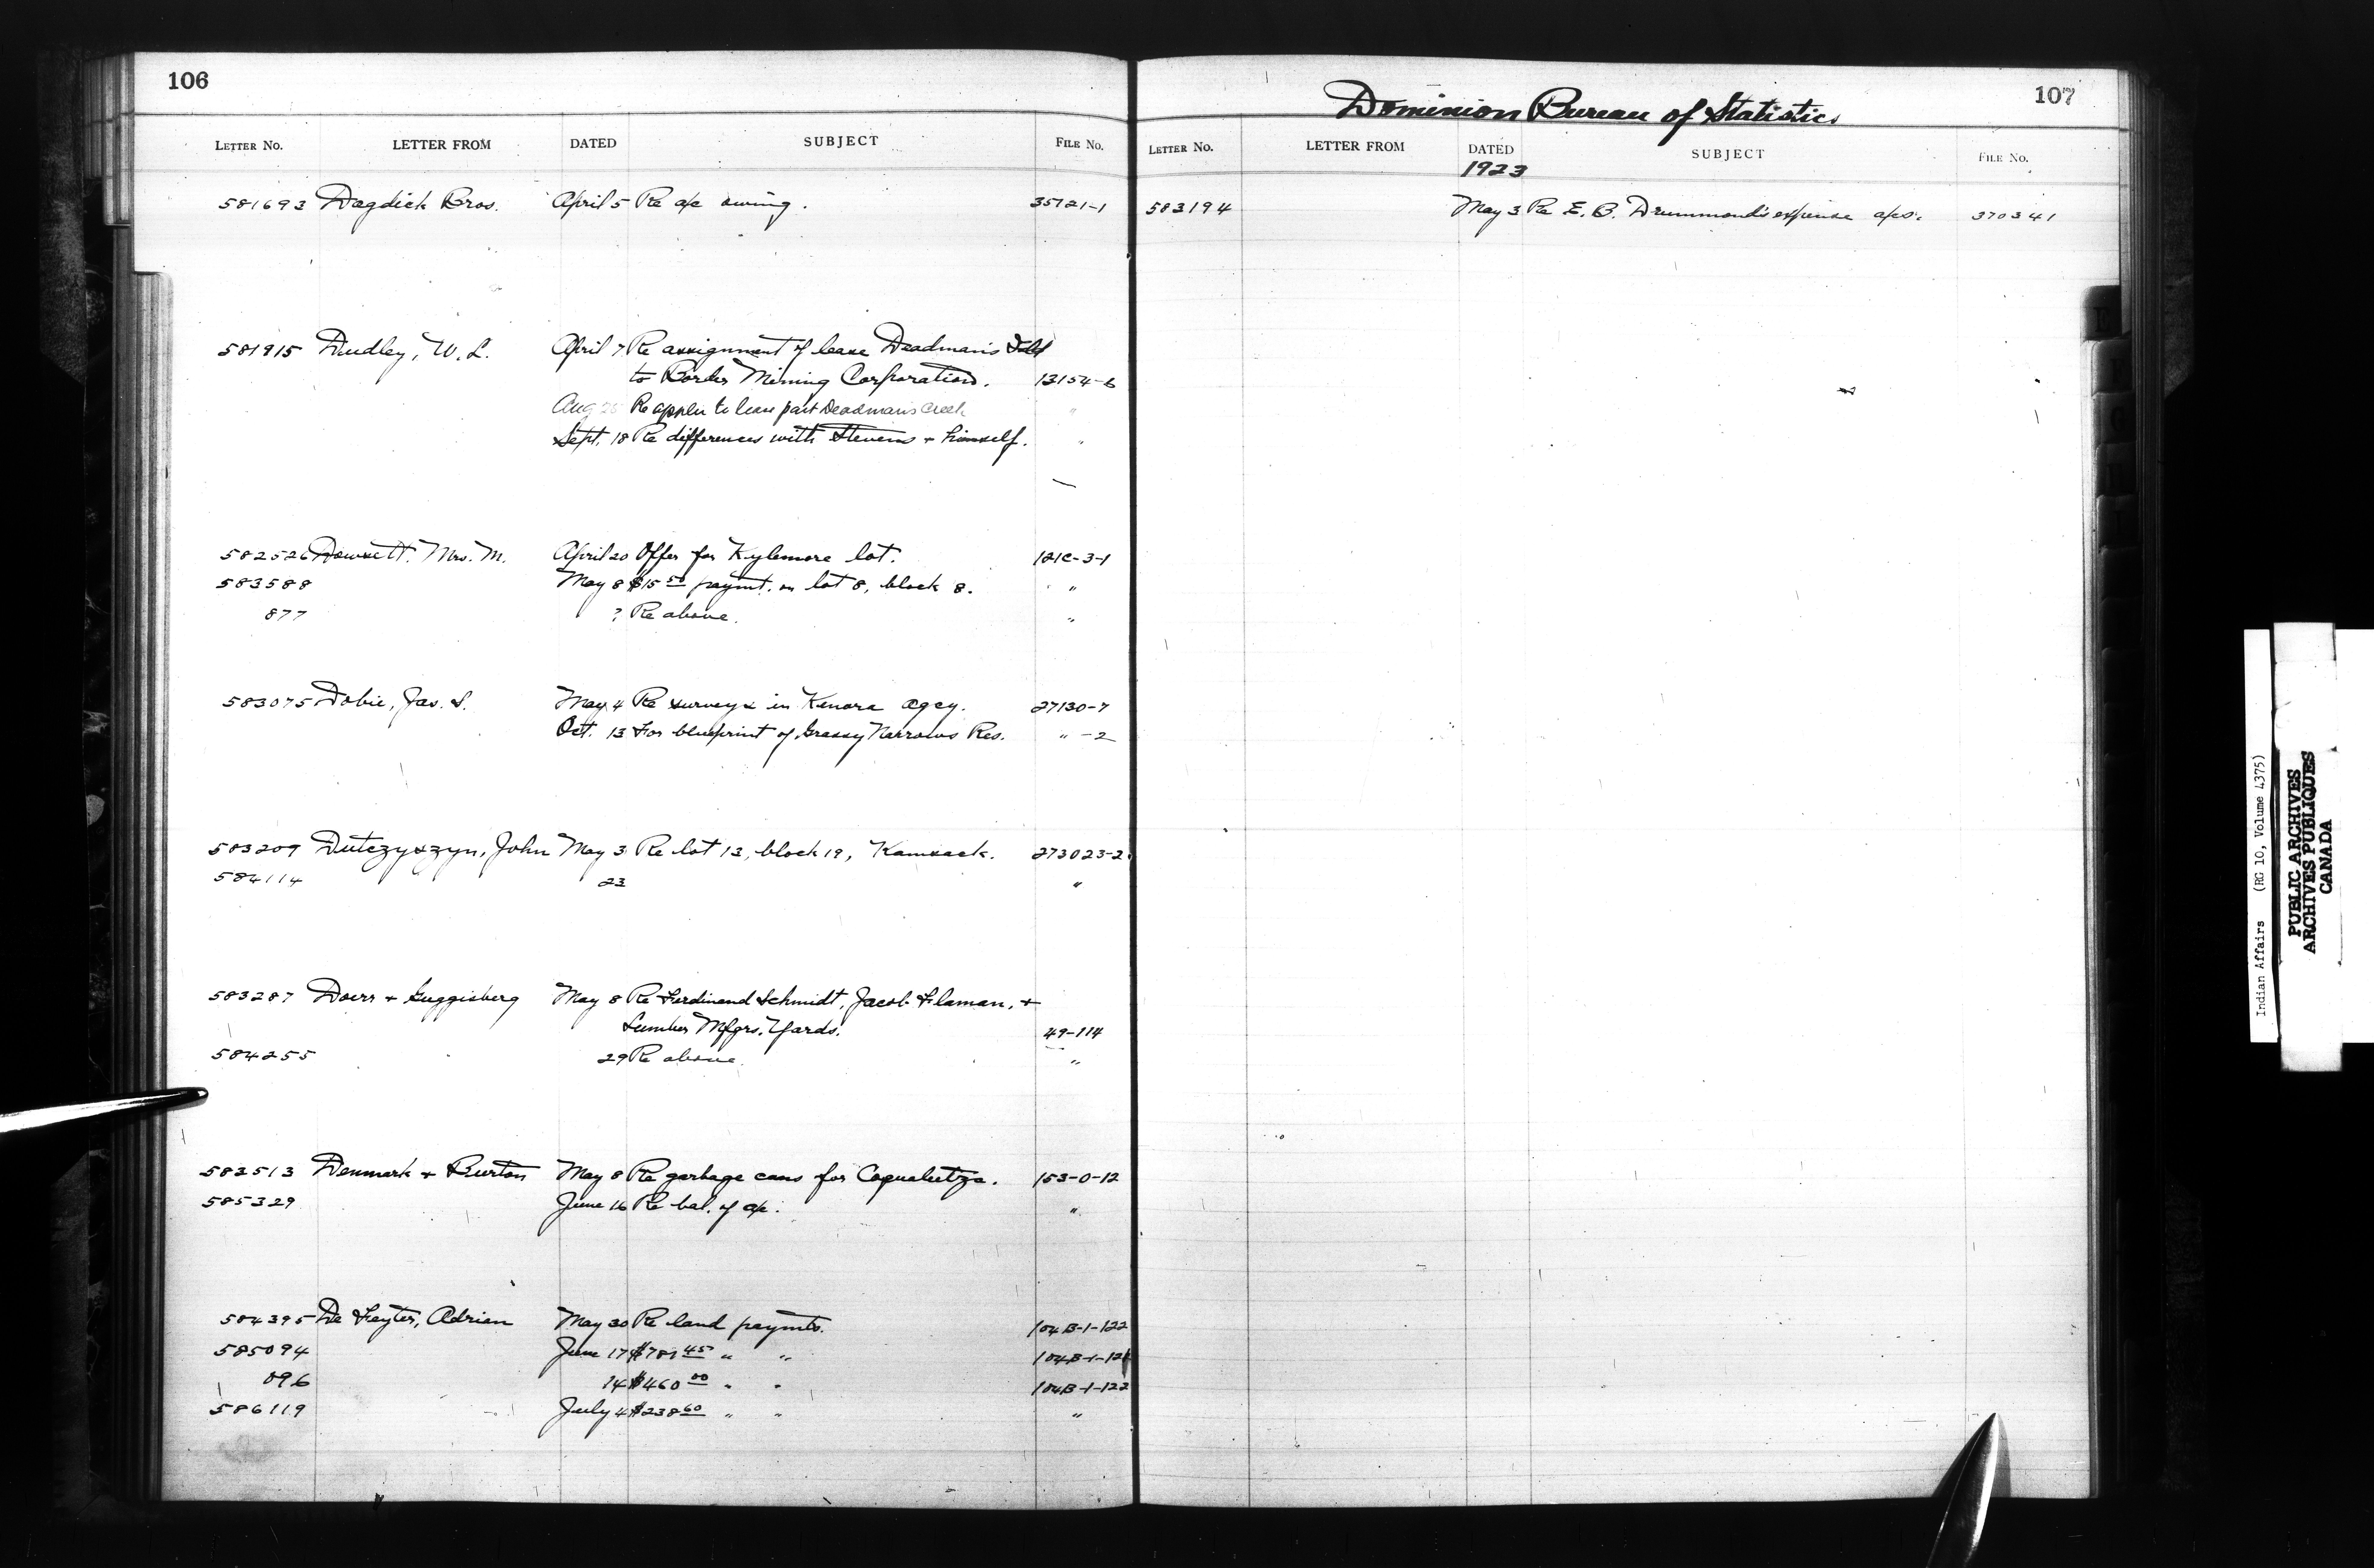 106
LETTER NO. LETTER FROM DATED SUBJECT FILE NO.
581693 Dagdick Bros. April 5 Re a/c owing. 35121-1
581915 Dudley, W. L. April 7 Re assignment of lease Deadman's Isld
to Border Mining Corporation. 13154-6
Aug 25 Re applen to lease part Deadman's Creek "
Sept. 18 Re differences with Stevens + himself. "
582526 Dowsett. Mrs. M. April 20 Offer for Kylemore lot. 121C-3-1
583588 May 8 $15 50 paymt. on lot 8, block 8. "
877 ? Re above. "
583075 Dobie, Jas. S. May 4 Re surveys in Kenora agcy. 27130-7
Oct. 13 For blueprint of Grassy Narrows Res. " -2
583209 Dutczyszyn, John May 3 Re lot 13, block 19, Kamsack. 273023-2
584114 23 "
583287 Doerr + Guggisberg May 8 Re Ferdinand Schmidt, Jacob Flaman, +
Lumber Mfgrs. Yards. 49-114
584255 29 Re above. "
583513 Denmark + Burton May 8 Re garbage cans for Coqualeetza. 153-0-12
585329 June 16 Re bal. of a/c. "
584395 De Feyter, Adrian May 30 Re land paymts. 104B-1-122
585094 June 17 $781 45 " " 104B-1-121
096 14 $460 00 " " 104B-1-122
586119 July 4 $238 60 " " "
107
Dominion Bureau of Statistics
LETTER NO. LETTER FROM DATED SUBJECT FILE NO.
1923
583194 May 3 Re E. B. Drummond's expense a/cs. 370341
Indian Affairs (RG 10, Volume 4375)
PUBLIC ARCHIVES
ARCHIVES PUBLIQUES
CANADA